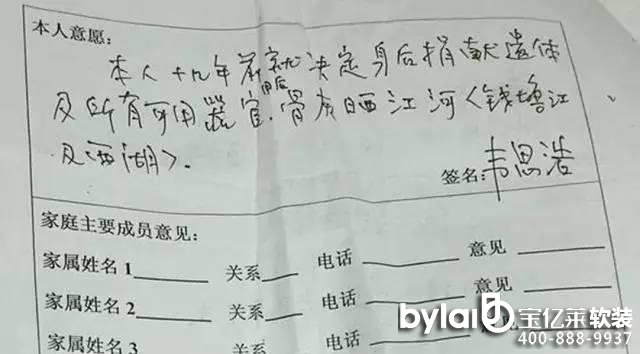 本人意愿:
本人十九年前就决定身后捐献遗体
及所有可用器官用后骨灰晒江河<钱塘江
及西湖>.
签名:韦思浩
家庭主要成员意见:
家属姓名1 关系 电话 意见
家属姓名2 关系 电话 意见
家属姓名3 关系 电话
bylai 宝亿莱软装
400-888-9937